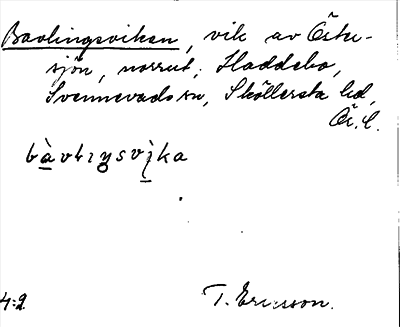 Bavlingsviken, vik av Östra-
sjön, norrut, Haddebo,
Svennevads sn, Sköllersta hd,
Ör. l.
bàvlɪŋsvìka
4:2 T. Ericsson.